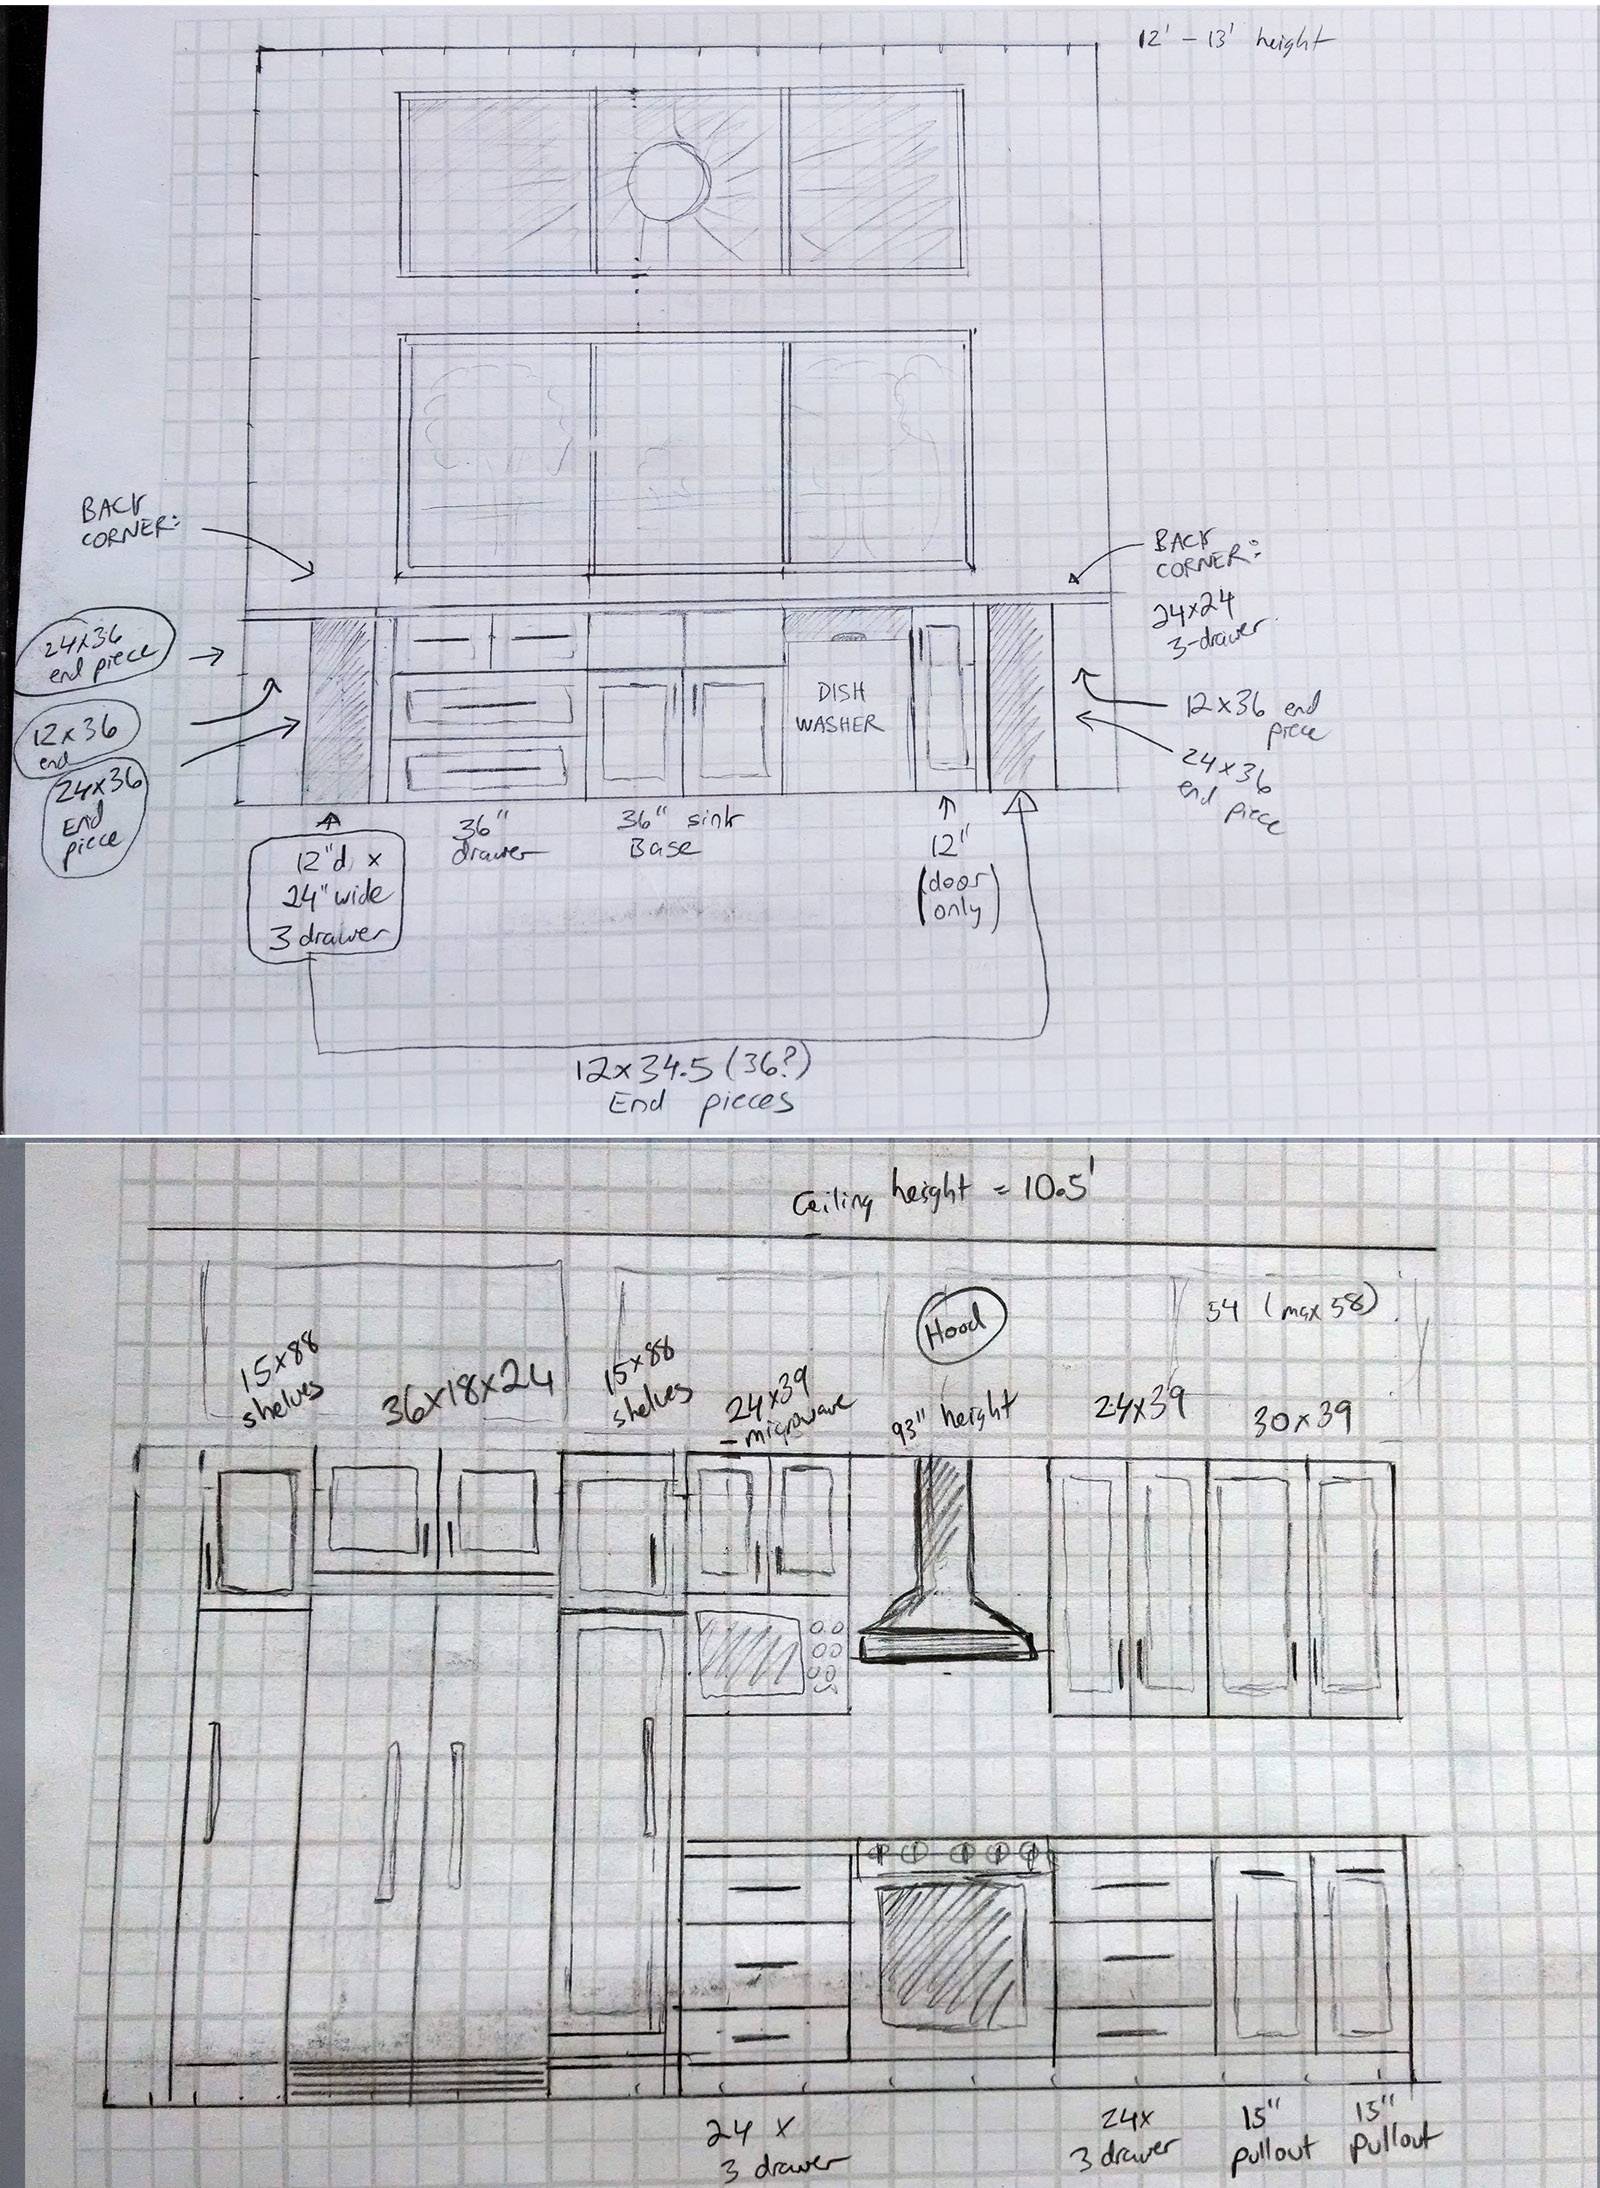 12' - 13' height
BACK
CORNER:
BACK
CORNER:
24x24
3-drawer
24x36
end piece
12x36
end
24x36
End
piece
12x36 end
piece
24x36
end
piece
DISH
WASHER
12"d x
24" wide
3 drawer
36"
drawer
36" sink
Base
12"
(door
only)
12x34.5 (36?)
End pieces
Ceiling height = 10.5'
Hood
54 (max 58)
15x88
shelves
36x18x24
15x88
shelves
24x39
- microwave
93" height
24x39
30x39
24 x
3 drawer
24x
3 drawer
15"
pullout
15"
pullout